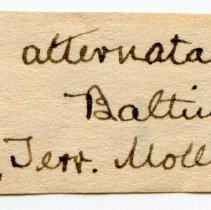 alternata
Balti
Terr. Moll